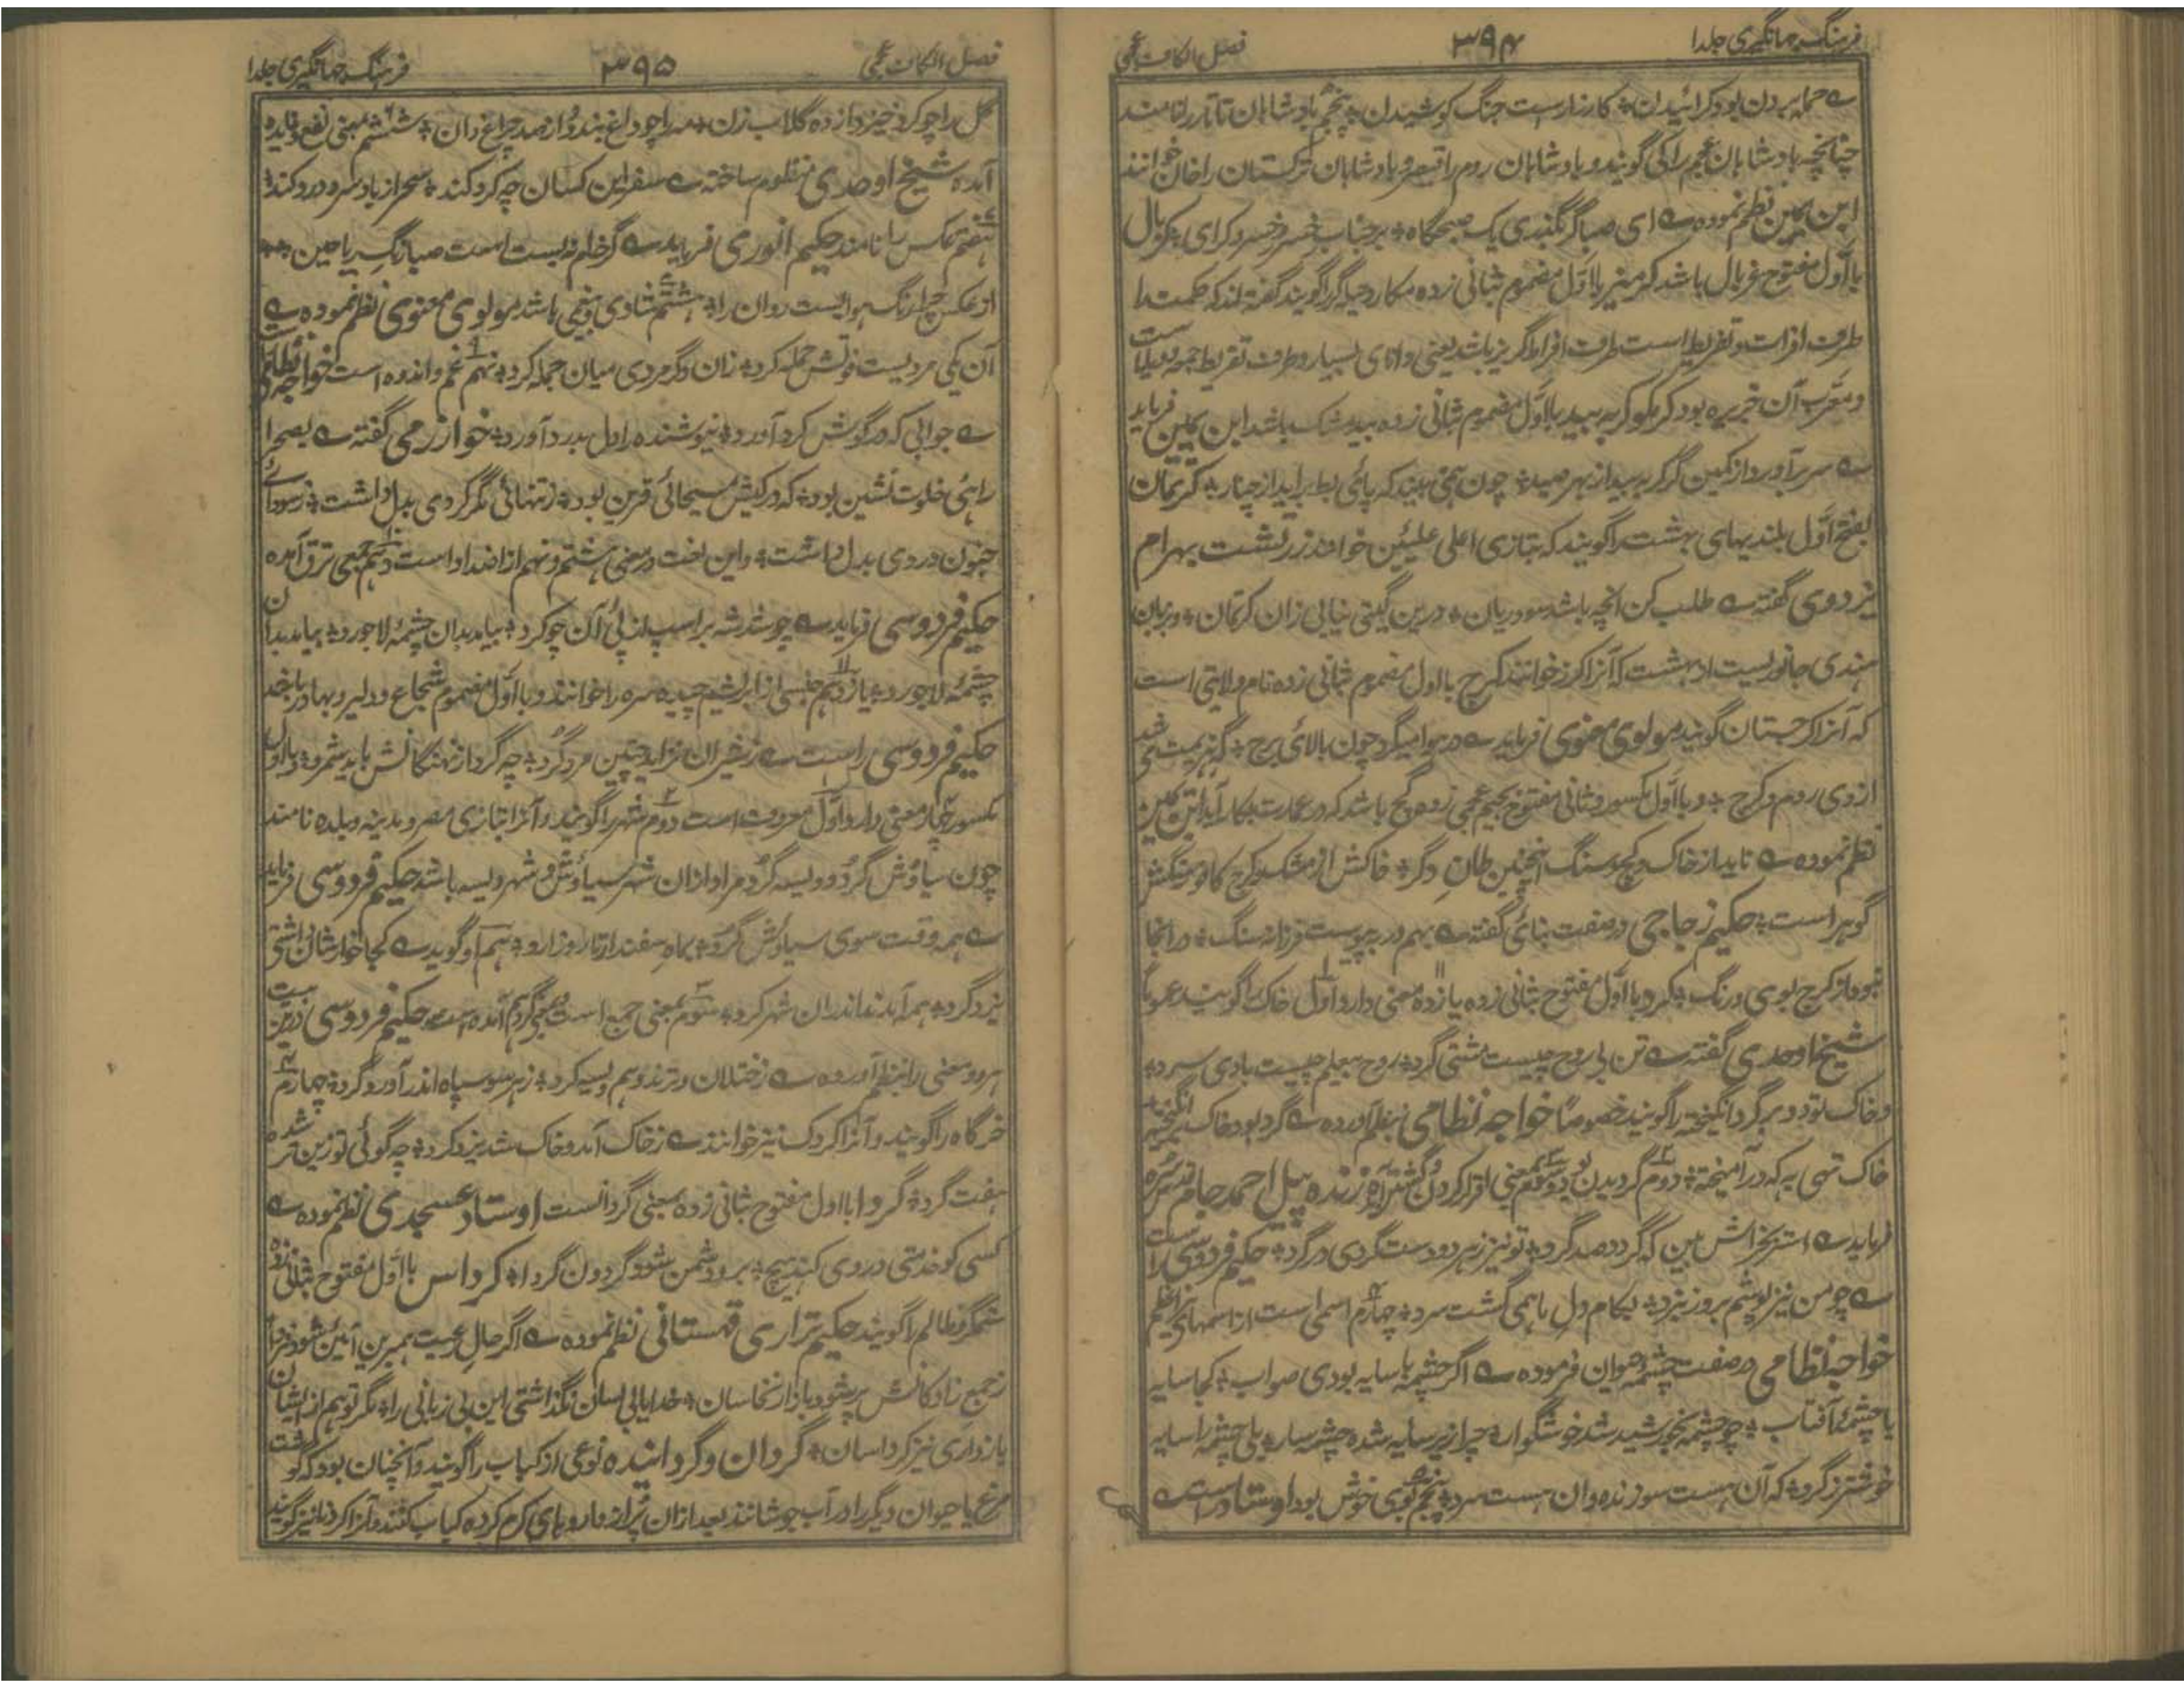 فرہنگ جہانگیری جلد ا
۳۹۴
فصل الکاف عجمی
ے حملہ بردن بود گرائیدان؛ کارزارست جنگ کوشیدان؛ پنجم پادشاہان تاتار را نامند
چنانچہ بادشاہان عجم را کی گویند و بادشاہان روم را قیصر و بادشاہان ترکستان را خان خوانند
ابن یمین نظم نمودہ ے ای صبا گر بگذری یک صبحگاہ؛ بر جناب خسرو کرای؛ گربال
با اول مفتوح غربال باشد گربز با اول مضموم بثانی زدہ مکار و حیلہ گر را گویند گفتہ اند کہ حکمت را
طرف افراط و تفریط است طرف افراط گربز باشد یعنی دانای بسیار و طرف تفریط
و معرب آن جربزہ بود گربکو گربہ بید با اول مضموم بثانی زدہ بیدمشک باشد ابن یمین فرماید
ے سر برآورد از کمین گر گربہ بید از بہر صید؛ چون ہمی بیند کہ پای بط برآید از چنار؛ گرتمان
بفتح اول بلندیہای بہشت را گویند کہ بتازی اعلی علیین خوانند زرتشت بہرام
یزدوی گفتہ ے طلب کن انچہ باشد سود زیان؛ درین گیتی نیابی زان گرتمان؛ و بزبان
ہندی جانوریست کہ آنرا کرز خوانند گرج با اول مضموم بثانی زدہ نام ولایتی است
کہ آنرا گرجستان گویند مولوی معنوی فرماید ے در ہوا میگرد چون بالای برج؛
از وی روم و گرج؛ و با اول مکسور و ثانی مفتوح بجیم عجمی زدہ گچ باشد کہ در عمارت بکار آید ابن یمین
نظم نمودہ ے ناید از خاک و گچ و سنگ اینچنین طاق دگر؛ خاکش از مشک و گرچ کافور و سنگش
گوہر است؛ حکیم زجاجی در صفت بنائی گفتہ ے بہم در بپیوست فرزانہ سنگ؛ در انجا
نبود از گرچ بوی و رنگ؛ گرد با اول مفتوح بثانی زدہ یازدہ معنی دارد اول خاک را گویند عموماً
شیخ اوحدی گفتہ ے تن بی روح چیست مشتی گرد؛ روح بیعلم چیست بادی سرد؛
و خاک تودہ و برگرد انگیختہ را گویند خصوصاً خواجہ نظامی بنظم آوردہ ے گرد بود خاک برانگیختہ
خاک تہی بہ کہ درآمیختہ؛ دوم گردیدن بود سوم معنی اقرار کردن و گشتن آمدہ ژندہ پیل احمد جام قدس سرہ
فرماید ے استر بخراش بین کہ گرد صد گرد؛ تو نیز ز ہر دو دست گردی در گرد؛ حکیم فردوسی راست
ے چو من نیز پوشم بروز نبرد؛ بکام دل ما ہمی گشت سرد؛ چہارم اسمی است از اسمہای نیر اعظم
خواجہ نظامی در صفت چشمہ حیوان فرمودہ ے اگر چشمہ با سایہ بودی صواب؛ کجا سایہ
با چشمۂ آفتاب؛ چو چشمہ بخورشید شد خوشگوار؛ چرا زیر سایہ شد آن چشمہ سار؛ بلی چشمہ را سایہ
خوشتر ز گرد؛ کہ آن ہست سوزندہ و ان ہست سرد؛ پنجم بوی خوش بود اوستاد راست ے
فرہنگ جہانگیری جلد ا
۳۹۵
فصل الکاف عجمی
گل را چو گرد خیزد از دہ گلاب زن؛ مہ را چو داغ بندد از صد چراغ دان؛ ششم بمعنی نفع و فایدہ
آمدہ شیخ اوحدی منظوم ساختہ ے سفر این کسان چہ گرد کند؛ سحر از باد سرد درد کند؛
ہفتم عکس را نامند حکیم انوری فرماید ے گر خام نہ بست است صبا رنگ ریاحین
از عکس چرا رنگ ہواییست روان را؛ ہشتم شادی و بیغمی باشد مولوی معنوی نظم نمودہ ے
آن یکی مردیست قوتش جملہ گرد؛ زان دگر مردی میان جملہ گرد؛ نہم غم و اندوہ است خواجہ نظامی
ے جوابی کہ در گوش گرد آورد؛ نیوشندہ را دل بدرد آورد؛ خوارزمی گفتہ ے بصحرا
راہی خلوت نشین بود؛ کہ در کیش مسیحائی قرین بود؛ ز تنہائی مگر گردی بدل داشت؛ ز سودائے
جنون دردی بدل داشت؛ و این لغت در معنی ہشتم و نہم از اضداد است دہم بمعنی ترق آمدہ
حکیم فردوسی فرماید ے چو شد شہ بر اسب از پی آن چو گرد؛ بیامد بدان چشمۂ لاجورد؛ بیامد بدان
چشمۂ لاجورد؛ یازدہم جنسی از ابریشم چیدہ سرہ را خوانند و با اول مضموم شجاع و دلیر و بہادر باشد
حکیم فردوسی راست ے ز شیران نزاید چنین مرد گرد؛ چہ گرد از نہنگانش باید شمرد؛ و با اول
مکسور چہار معنی دارد اول معروف است دوم شہر را گویند و آنرا بتازی مصر و مدینہ و بلدہ نامند
چون سیاوش گرد و ویسہ گرد مراد از ان شہر سیاوش و شہر ویسہ باشد حکیم فردوسی فرماید
ے ہمہ وقت سوی سیاوش گرد؛ بماہ سفندارمذ روز ارد؛ ہم او گوید ے کجا خارشان اشتی
یزدگرد؛ ہمہ آمدند اندران شہر گرد؛ سوم بمعنی جمع است و بمعنی گردہم آمدہ است حکیم فردوسی درین بیت
ہر دو معنی را بنظم آوردہ ے ز ختلان و ترمذ و ہم ویسہ گرد؛ ز ہر سو سپاہ اندر آورد گرد؛ چہارم
خرگاہ را گویند و آنرا گردک نیز خوانند ے ز خاک آمد و خاک شد یزدگرد؛ چہ گوئی تو زین بر شدہ
ہفت گرد؛ گردا با اول مفتوح بثانی زدہ بمعنی گردانست اوستاد عسجدی نظم نمودہ ے
کسی کو خدمتی در وی کند ہیچ؛ برو دشمن شود گردون گردا؛ گرداس با اول مفتوح بثانی زدہ
ستمگر و ظالم را گویند حکیم نزاری قہستانی نظم نمودہ ے اگر حال رعیت ہم برین آئین شود فردا
ز جمع نازکانش پر شود بازار نخاسان؛ خدایا بی لسان نگذاشتی این بی زبانی را؛ مگر تو ہم از ایشان
باز داری نیز گرداسان؛ گردان و گردانیدہ نوعی از کباب را گویند و آنچنان بود کہ گوشت
مرغ یا حیوان دیگر را در آب جوشانند بعد از ان پر از داروہای گرم کردہ کباب کنند و آنرا گردنا نیز گویند